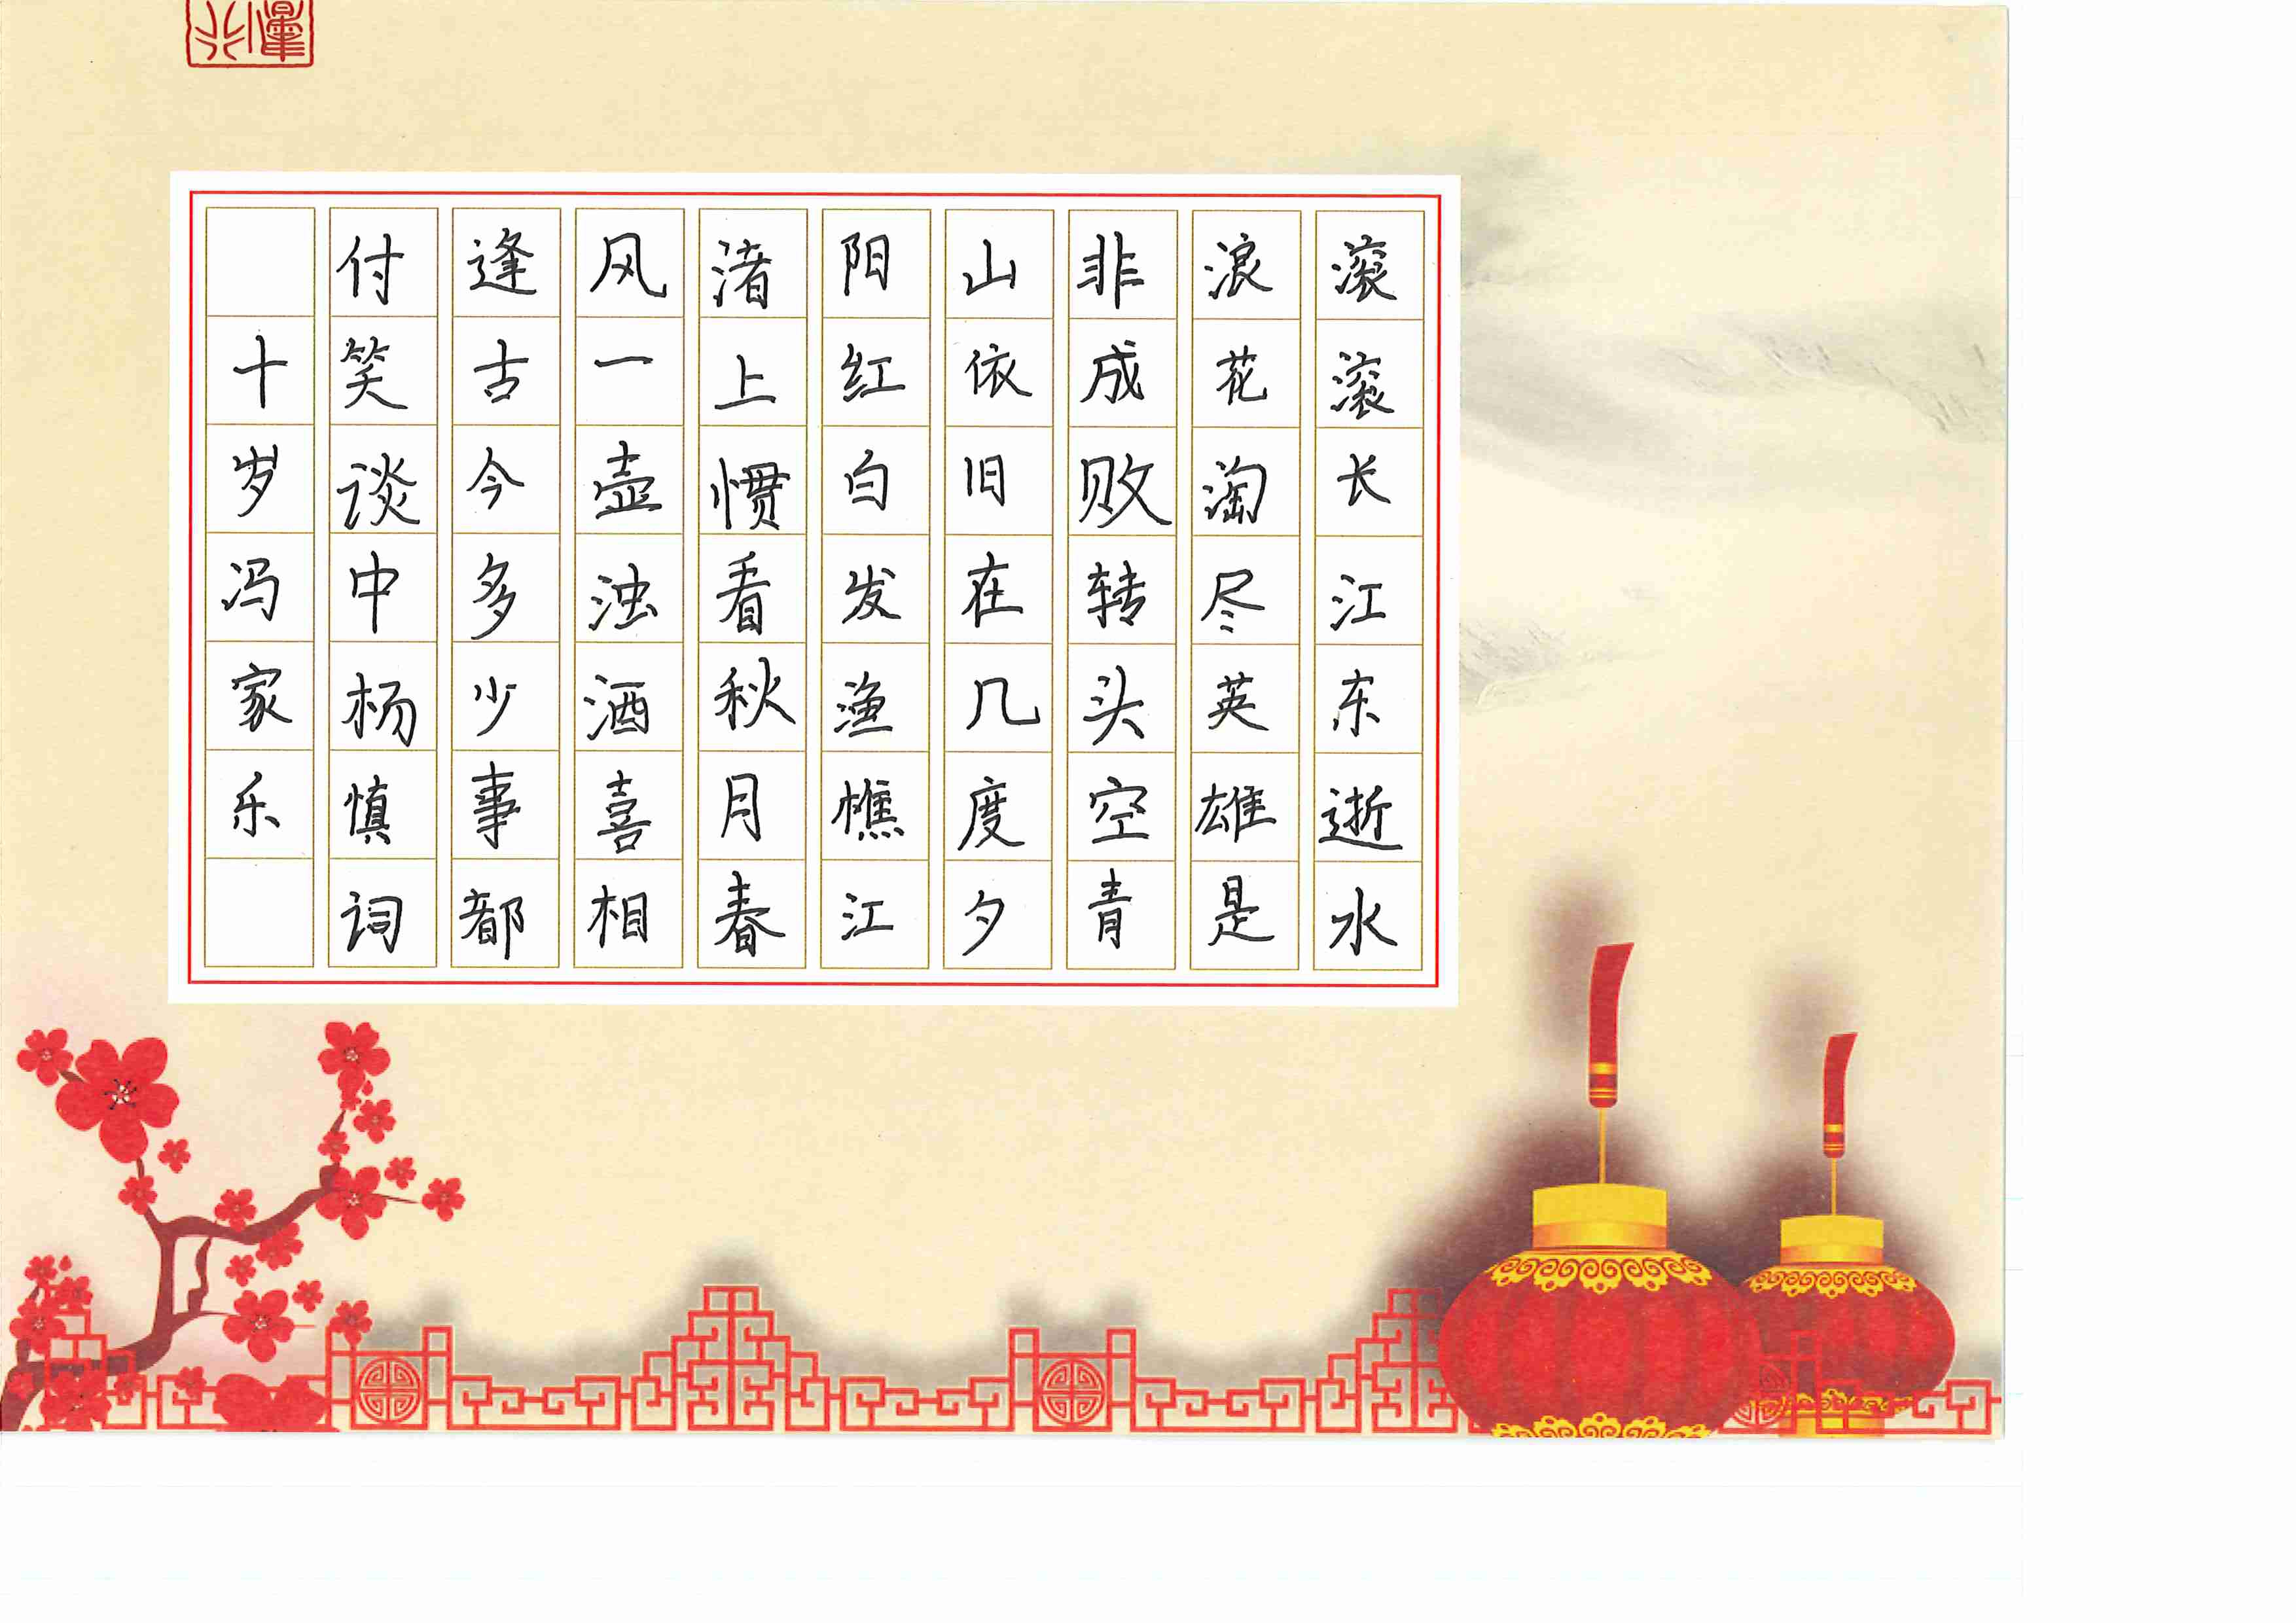 滚滚长江东逝水
浪花淘尽英雄是
非成败转头空青
山依旧在几度夕
阳红白发渔樵江
渚上惯看秋月春
风一壶浊酒喜相
逢古今多少事都
付笑谈中杨慎词
十岁冯家乐